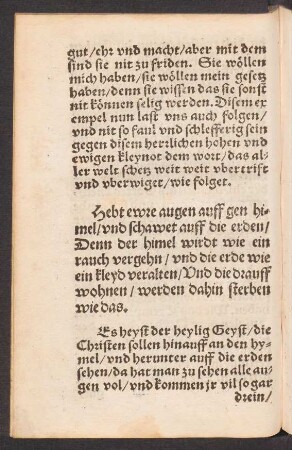 gut/ehr vnd macht/aber mit dem
sind sie nit zu friden. Sie wöllen
mich haben/sie wöllen mein gesetz
haben/denn sie wissen das sie sonst
nit können selig werden. Disem ex
empel nun last vns auch folgen/
vnd nit so faul vnd schlefferig sein
gegen disem herrlichen hohen vnd
ewigen kleynot dem wort/das al-
ler welt schetz weit weit vbertrift
vnd vberwiget/wie folget.
Hebt ewre augen auff gen hi-
mel/vnd schawet auff die erden/
Denn der himel wirdt wie ein
rauch vergehn/vnd die erde wie
ein kleyd veralten/Vnd die drauff
wohnen/werden dahin sterben
wie das.
Es heyst der heylig Geyst/die
Christen sollen hinauff an den hy-
mel/vnd herunter auff die erden
sehen/da hat man zu sehen alle au-
gen vol/vnd kommen jr vil so gar
drein/